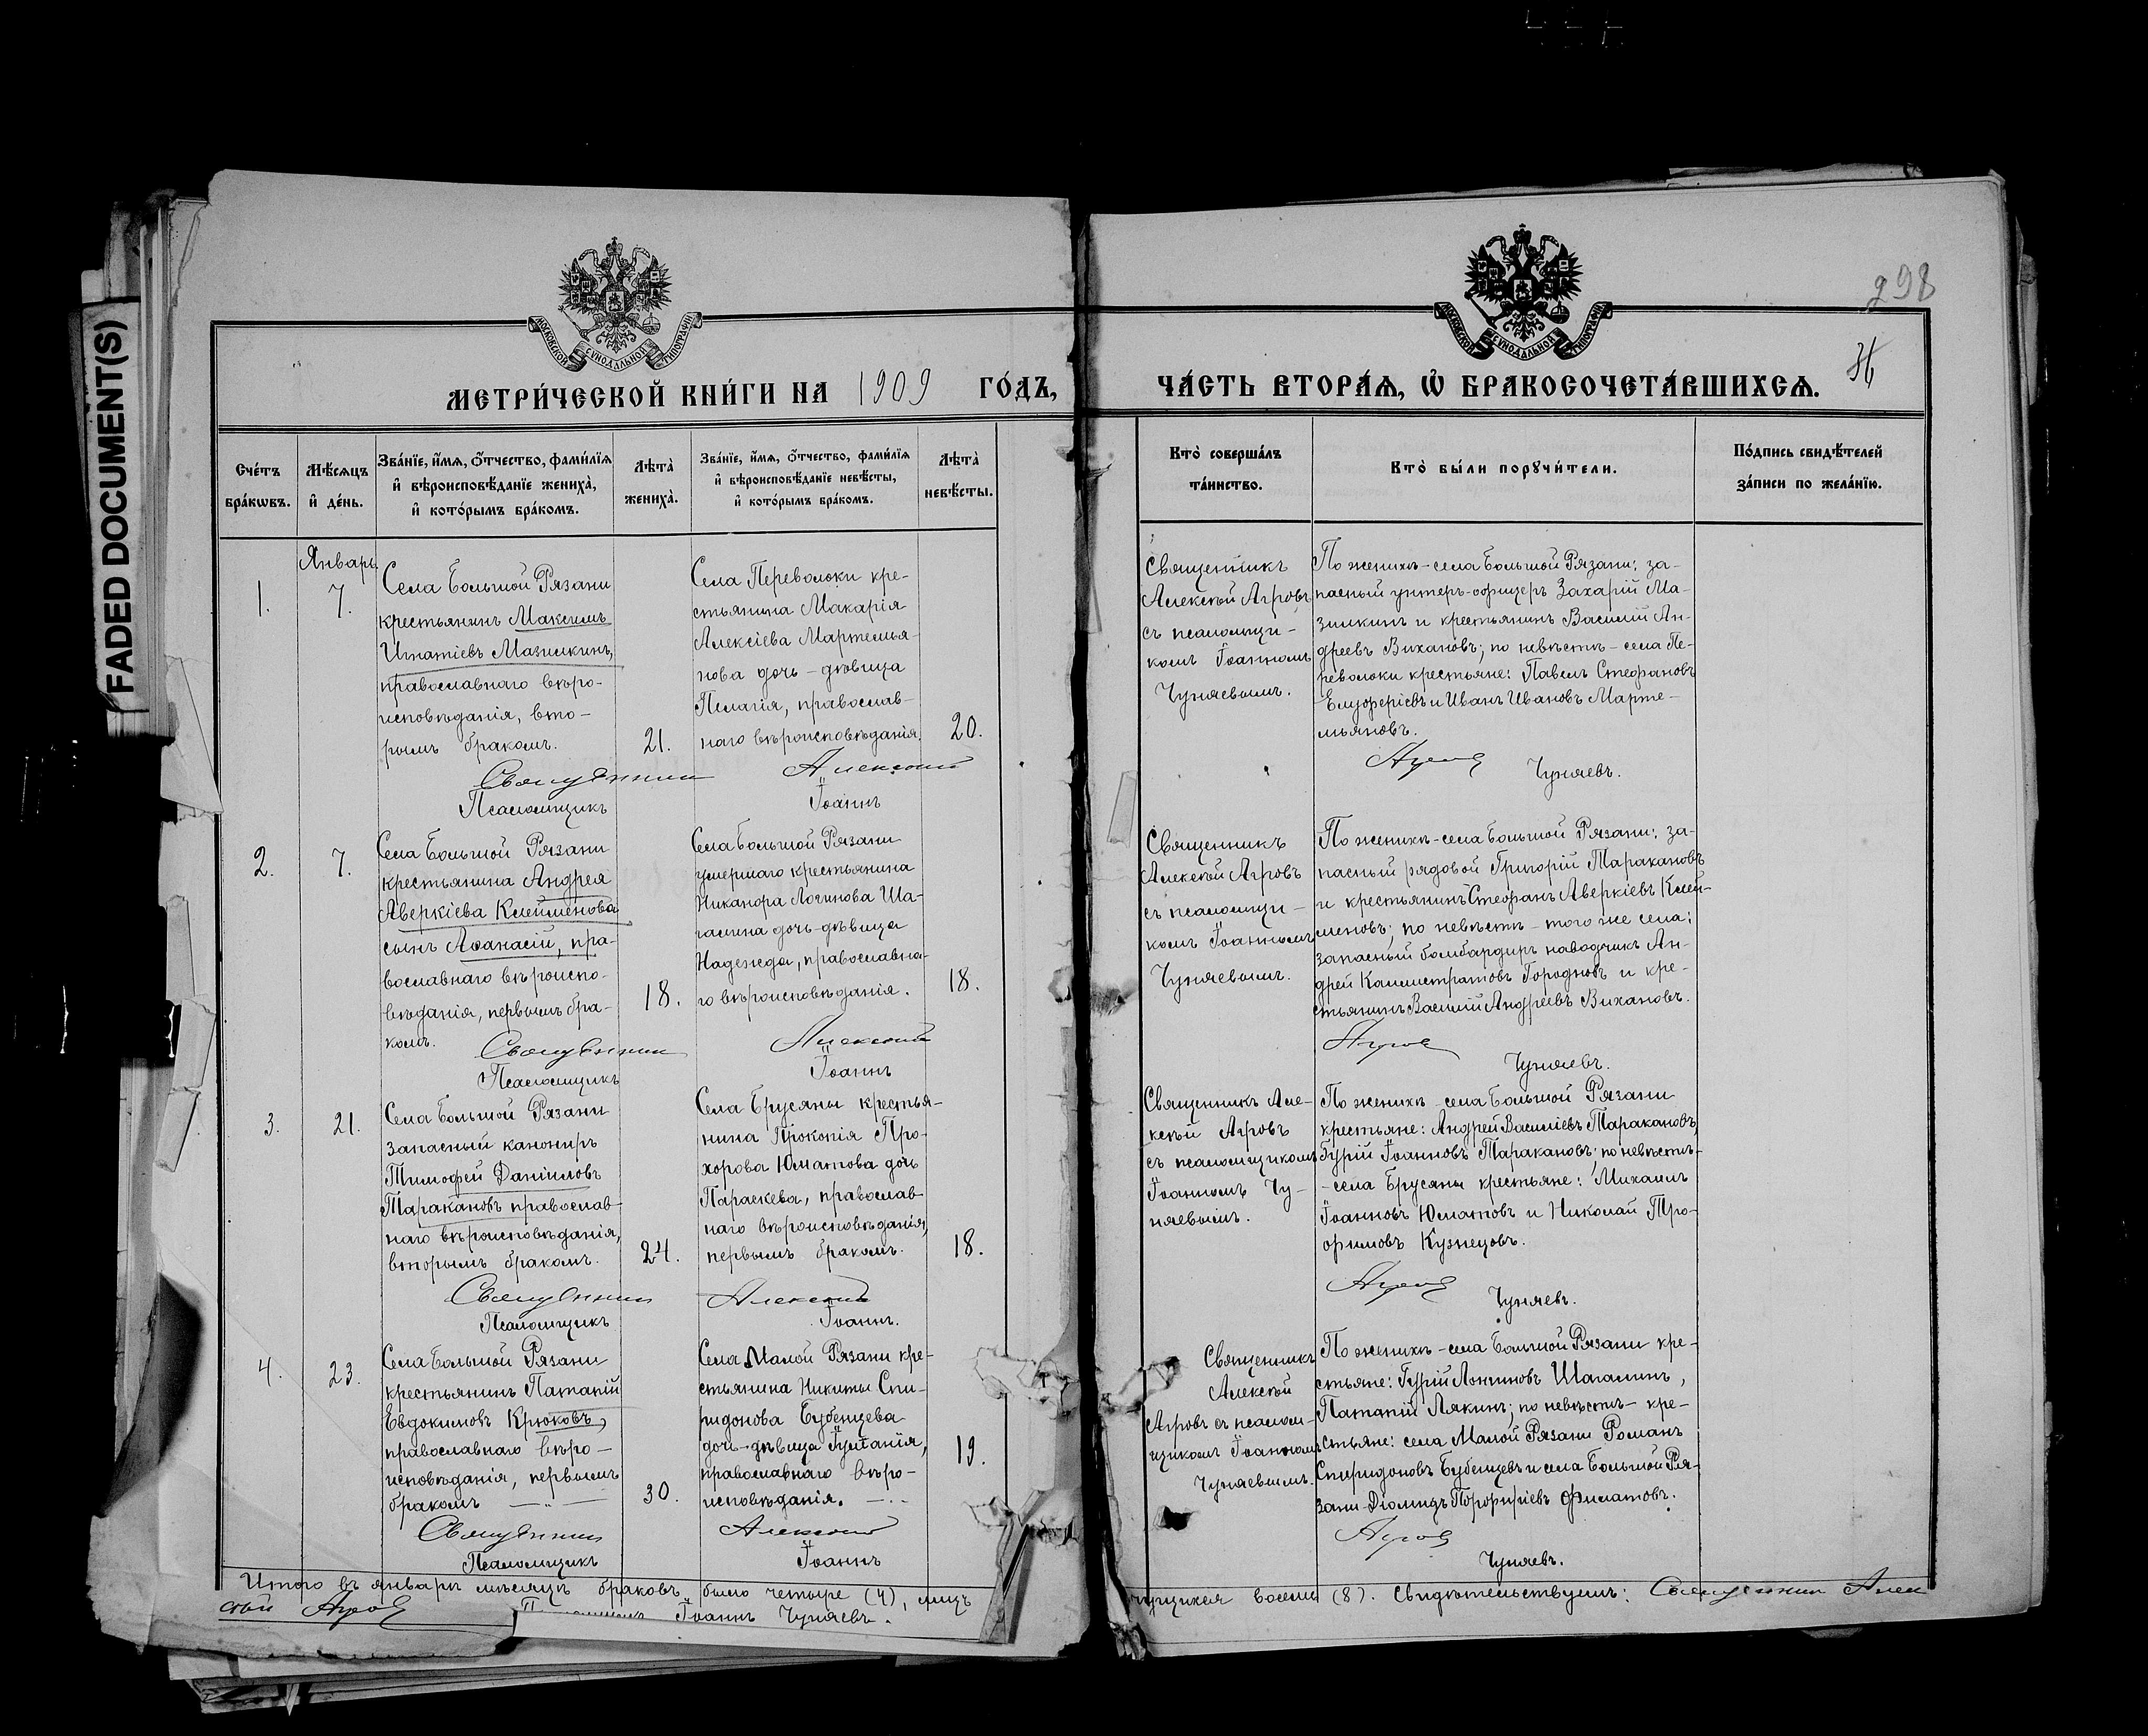 FADED DOCUMENT(S)
298
36
МОСКОВСКОЙ СѴНОДАЛЬНОЙ ТИПОГРАФІИ
МОСКОВСКОЙ СѴНОДАЛЬНОЙ ТИПОГРАФІИ
МЕТРИ́ЧЕСКОЙ КНИ́ГИ НА 1909 ГО́ДЪ,
ЧА́СТЬ ВТОРА́Ѧ, Ѽ БРАКОСОЧЕТА́ВШИХСѦ.
Сче́тъ
бра́кѡвъ.
Мѣ́сѧцъ
и҆ де́нь.
Зва́нїе, и҆́мѧ, ѻ҆́тчество, фами́лїѧ
и҆ вѣроисповѣ́данїе жениха̀,
и҆ кото́рымъ бра́комъ.
Лѣта̀
жениха̀.
Зва́нїе, и҆́мѧ, ѻ҆́тчество, фами́лїѧ
и҆ вѣроисповѣ́данїе невѣ́сты,
и҆ кото́рымъ бра́комъ.
Лѣта̀
невѣ́сты.
Кто̀ соверша́лъ
та́инство.
Кто̀ бы́ли порꙋчи́тели.
По́дпись свидѣ́телей
за́писи по жела́нїю.
1.
Январь.
7.
Села Большой Рязани
крестьянинъ Максимъ
Игнатіевъ Мазилкинъ,
православнаго вѣро-
исповѣданія, вто-
рымъ бракомъ.
21.
Села Переволоки кре-
стьянина Макарія
Алексіева Мартемья-
нова дочь - дѣвица
Пелагія, православ-
наго вѣроисповѣданія.
20.
Священникъ
Алексѣй Агровъ
съ псаломщи-
комъ Іоанномъ
Чуняевымъ.
По женихѣ - села Большой Рязани: за-
пасный унтеръ-офицеръ Захарій Ма-
зилкинъ и крестьянинъ Василій Ан-
дреевъ Вихановъ; по невѣстѣ - села Пе-
револоки крестьяне: Павелъ Стефановъ
Елуферіевъ и Иванъ Ивановъ Марте-
мьяновъ.
Священникъ Алексѣй Агровъ
Псаломщикъ Іоаннъ Чуняевъ.
2.
7.
Села Большой Рязани
крестьянина Андрея
Аверкіева Клейменова
сынъ Аѳанасій, пра-
вославнаго вѣроиспо-
вѣданія, первымъ бра-
комъ.
18.
Села Большой Рязани
умершаго крестьянина
Никанора Логинова Ша-
галина дочь-дѣвица
Надежда, православна-
го вѣроисповѣданія.
18.
Священникъ
Алексѣй Агровъ
съ псаломщи-
комъ Іоанномъ
Чуняевымъ.
По женихѣ - села Большой Рязани: за-
пасный рядовой Григорій Таракановъ
и крестьянинъ Стефанъ Аверкіевъ Клей-
меновъ; по невѣстѣ - того же села:
запасный бомбардиръ наводчикъ Ан-
дрей Каллистратовъ Городновъ и кре-
стьянинъ Василій Андреевъ Вихановъ.
Священникъ Алексѣй Агровъ
Псаломщикъ Іоаннъ Чуняевъ.
3.
21.
Села Большой Рязани
запасный канониръ
Тимофей Даніиловъ
Таракановъ православ-
наго вѣроисповѣданія,
вторымъ бракомъ.
24.
Села Брусяны крестья-
нина Прокопія Про-
хорова Юматова дочь
Параскева, православ-
наго вѣроисповѣданія,
первымъ бракомъ.
18.
Священникъ Але-
ксѣй Агровъ
съ псаломщикомъ
Іоанномъ Чу-
няевымъ.
По женихѣ - села Большой Рязани
крестьяне: Андрей Василіевъ Таракановъ,
Гурій Іоанновъ Таракановъ; по невѣстѣ-
- села Брусяны крестьяне: Михаилъ
Іоанновъ Юматовъ и Николай Тро-
фимовъ Кузнецовъ.
Священникъ Алексѣй Агровъ
Псаломщикъ Іоаннъ. Чуняевъ.
4.
23.
Села Большой Рязани
крестьянинъ Патапій
Евдокимовъ Крюковъ,
православнаго вѣро-
исповѣданія, первымъ
бракомъ
30.
Села Малой Рязани кре-
стьянина Никиты Спи-
ридонова Бубенцева
дочь-дѣвица Іуліанія,
православнаго вѣро-
исповѣданія.
19.
Священникъ
Алексѣй
Агровъ съ псалом-
щикомъ Іоанномъ
Чуняевымъ.
По женихѣ - села Большой Рязани кре-
стьяне: Гурій Лонгиновъ Шагалинъ,
Патапій Лякинъ; по невѣстѣ - кре-
стьяне: села Малой Рязани Романъ
Спиридоновъ Бубенцевъ и села Большой Ря-
зани Діомидъ Порфиріевъ Филатовъ.
Священникъ Алексѣй Агровъ
Псаломщикъ Іоаннъ Чуняевъ.
Итого въ январѣ мѣсяцѣ браковъ было четыре (4), лицъ
восемь (8). Свидѣтельствуемъ: Священникъ Алек
сѣй Агровъ Іоаннъ Чуняевъ.